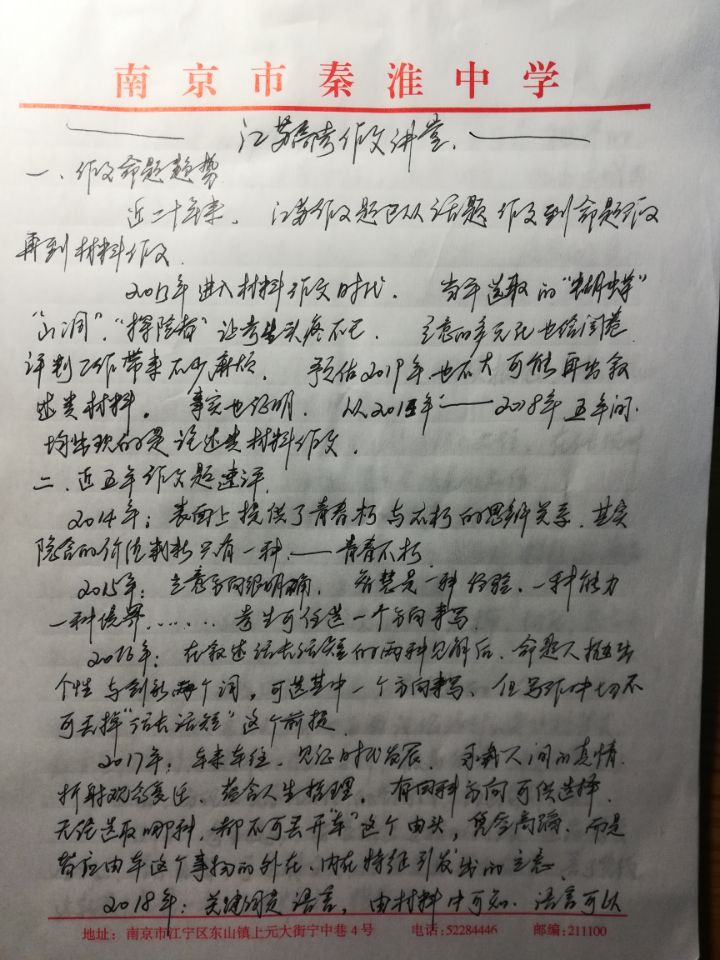 南京市秦淮中学
江苏高考作文讲堂.
一、作文命题趋势
近二十年来。江苏作文题已从话题作文到命题作文
再到材料作文.
2013年进入材料作文时代.当年选取的“蝴蝶”
“山洞”.“探险者”让考生头疼不已.立意的多元化也给阅卷
评判工作带来不少麻烦.预估2019年也不大可能再出叙
述类材料。事实也证明.从2015年——2018年五年间.
均出现的是论述类材料作文.
二.近五年作文题速评.
2014年:表面上提供了青春朽与不朽的思辨关系.其实
隐含的价值判断只有一种.——青春不朽.
2015年:立意方向很明确.智慧是一种经验.一种能力
一种境界......考生可任选一个方向来写.
2016年:在叙述话长话短的两种见解后.命题人提出
个性与创新两个词,可选其中一个方向来写.但写作中切不
可丢掉“话长话短”这个前提.
2017年:车来车往.见证时代发展.承载人间的真情.
折射观念变迁、蕴含人生哲理。有四种方向可供选择.
无论选取哪种.都不可丢开“车”这个由头,凭空高蹈.而是
皆应由车这个事物的外在、内在特征引发出的立意.
2018年:关键词是语言。由材料中可知.语言可以
地址:南京市江宁区东山镇上元大街宁中巷4号 电话:52284446 邮编:211100